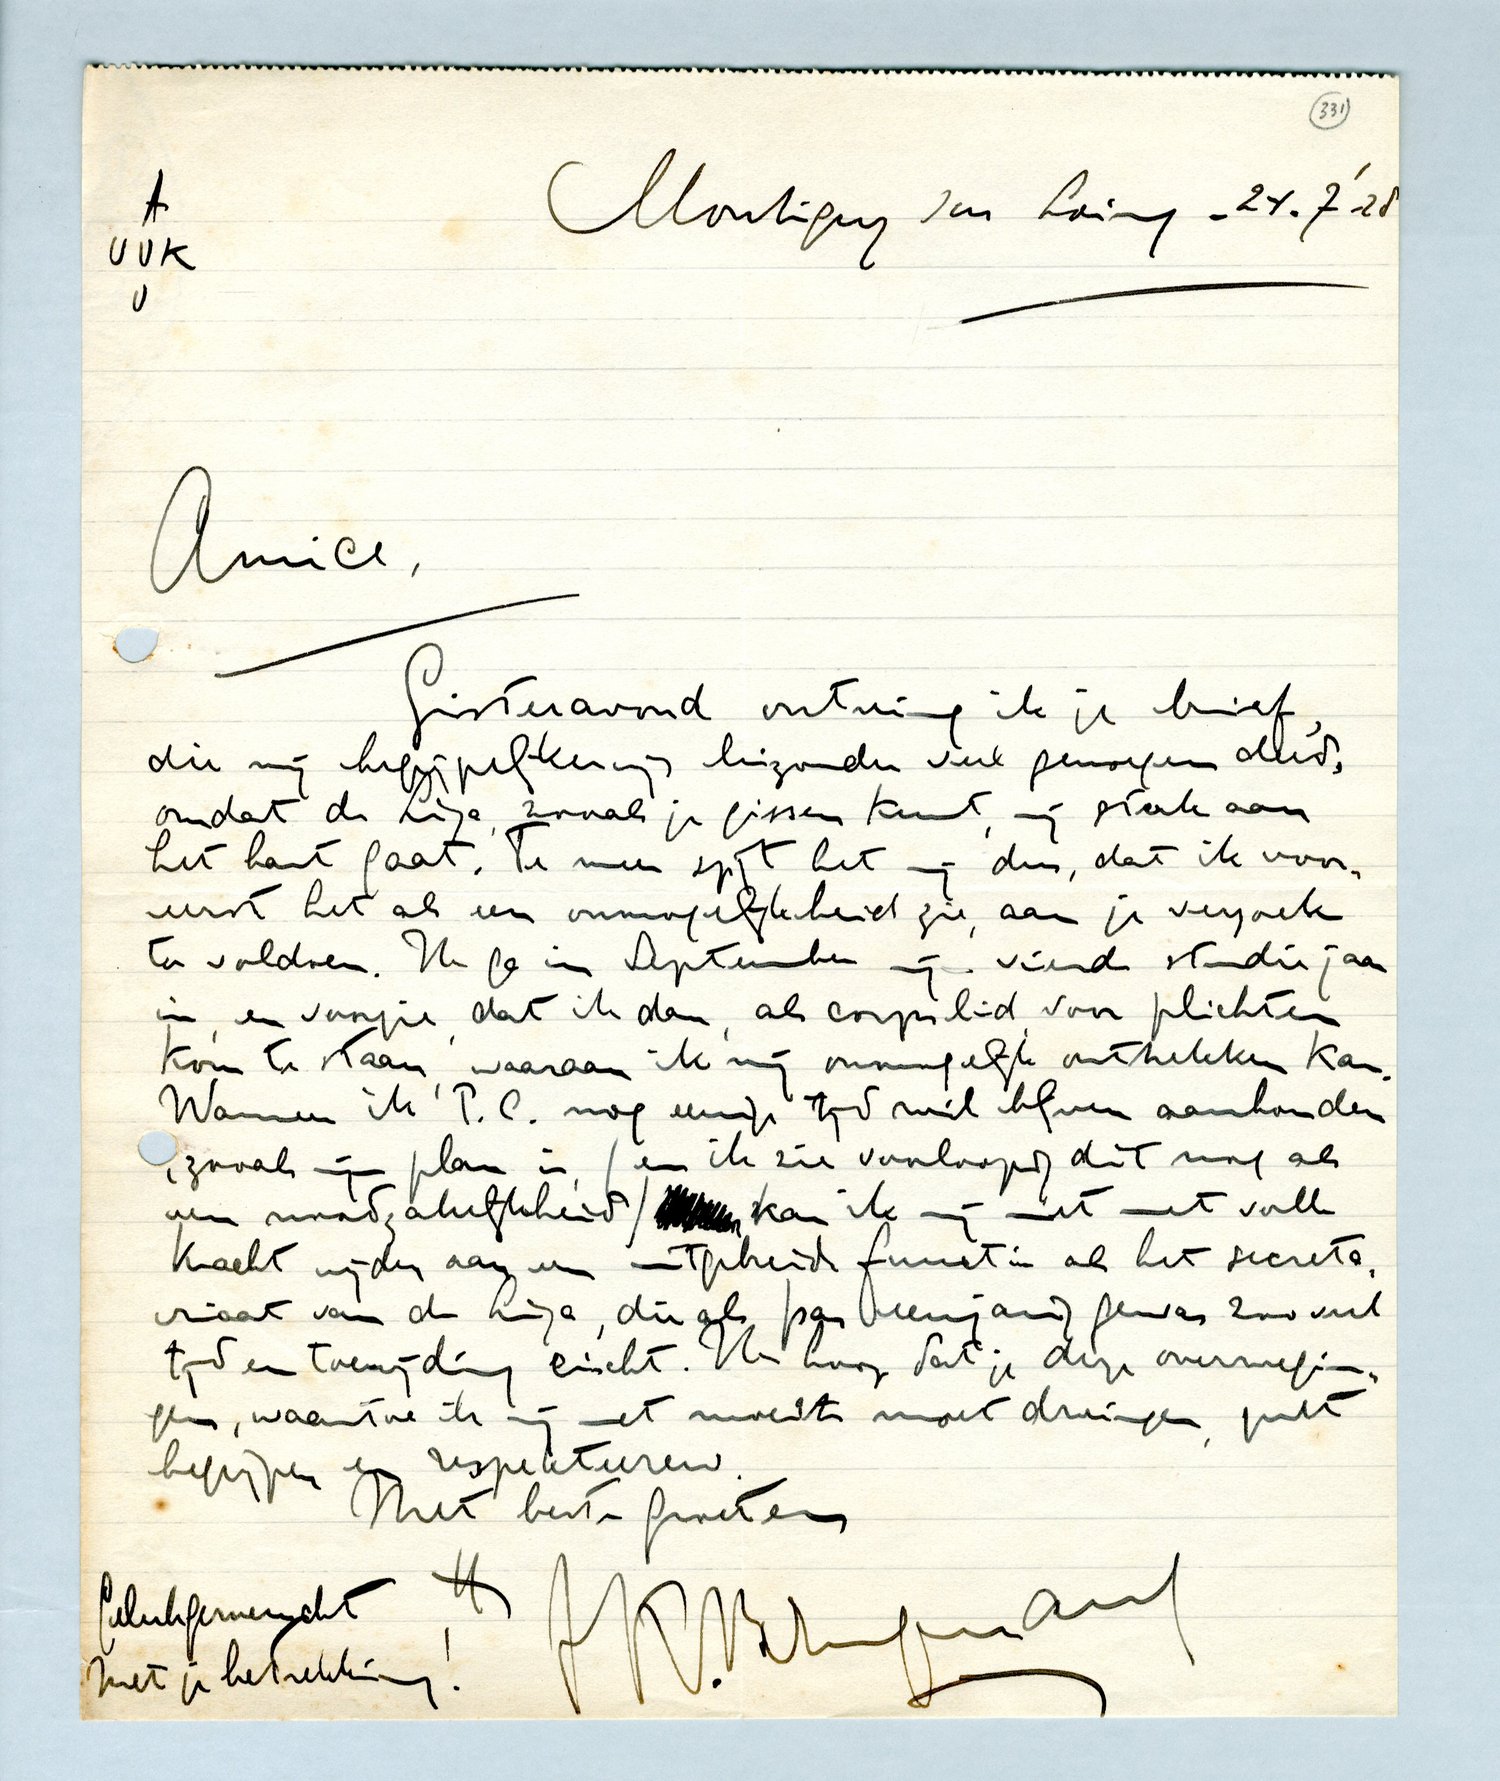 331
A
VVK
V
Montigny sur Loing - 24.7.'28
Amice,
Gisteravond ontving ik je brief,
die mij begrijpelijkerwijs bizonder veel genoegen deed,
omdat de Liga, zooals je gissen kunt, mij sterk aan
het hart gaat. Te meer spijt het mij dus, dat ik voor-
eerst het als een onmogelijkheid zie, aan je verzoek
te voldoen. Ik ga in September mijn vierde studiejaar
in, en voorzie, dat ik dan, als corpslid, voor plichten
kom te staan, waaraan ik mij onmogelijk onttrekken kan.
Wanneer ik T.C. nog eenige tijd wil blijven aanhouden
, zooals mijn plan is, / en ik zie voorloopig dit nog als
een noodzakelijkheid / kan ik mij niet met volle
kracht wijden aan een uitgebreide functie als het secreta-
riaat van de Liga, die als pas eenjarig gewas zooveel
tijd en toewijding eischt. Ik hoop dat je deze overwegin-
gen, waartoe ik mij met moeite moet dwingen, zult
begrijpen en respecteeren.
Met beste groeten
Gelukgewenscht
met je betrekking!